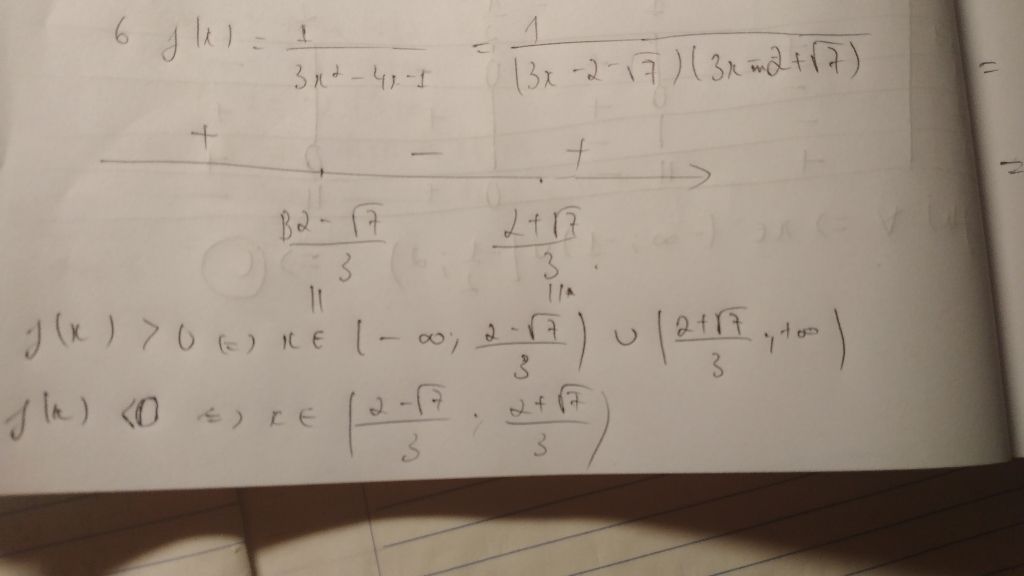 6 f(x) = 1/(3x² - 4x - 1) = 1/((3x - 2 - √7)(3x - 2 + √7)) =
+ - +
(2 - √7)/3 (2 + √7)/3
|| ||
f(x) > 0 (=) x ∈ (- ∞; (2 - √7)/3) ∪ ((2 + √7)/3; +∞)
f(x) < 0 (=) x ∈ ((2 - √7)/3; (2 + √7)/3)